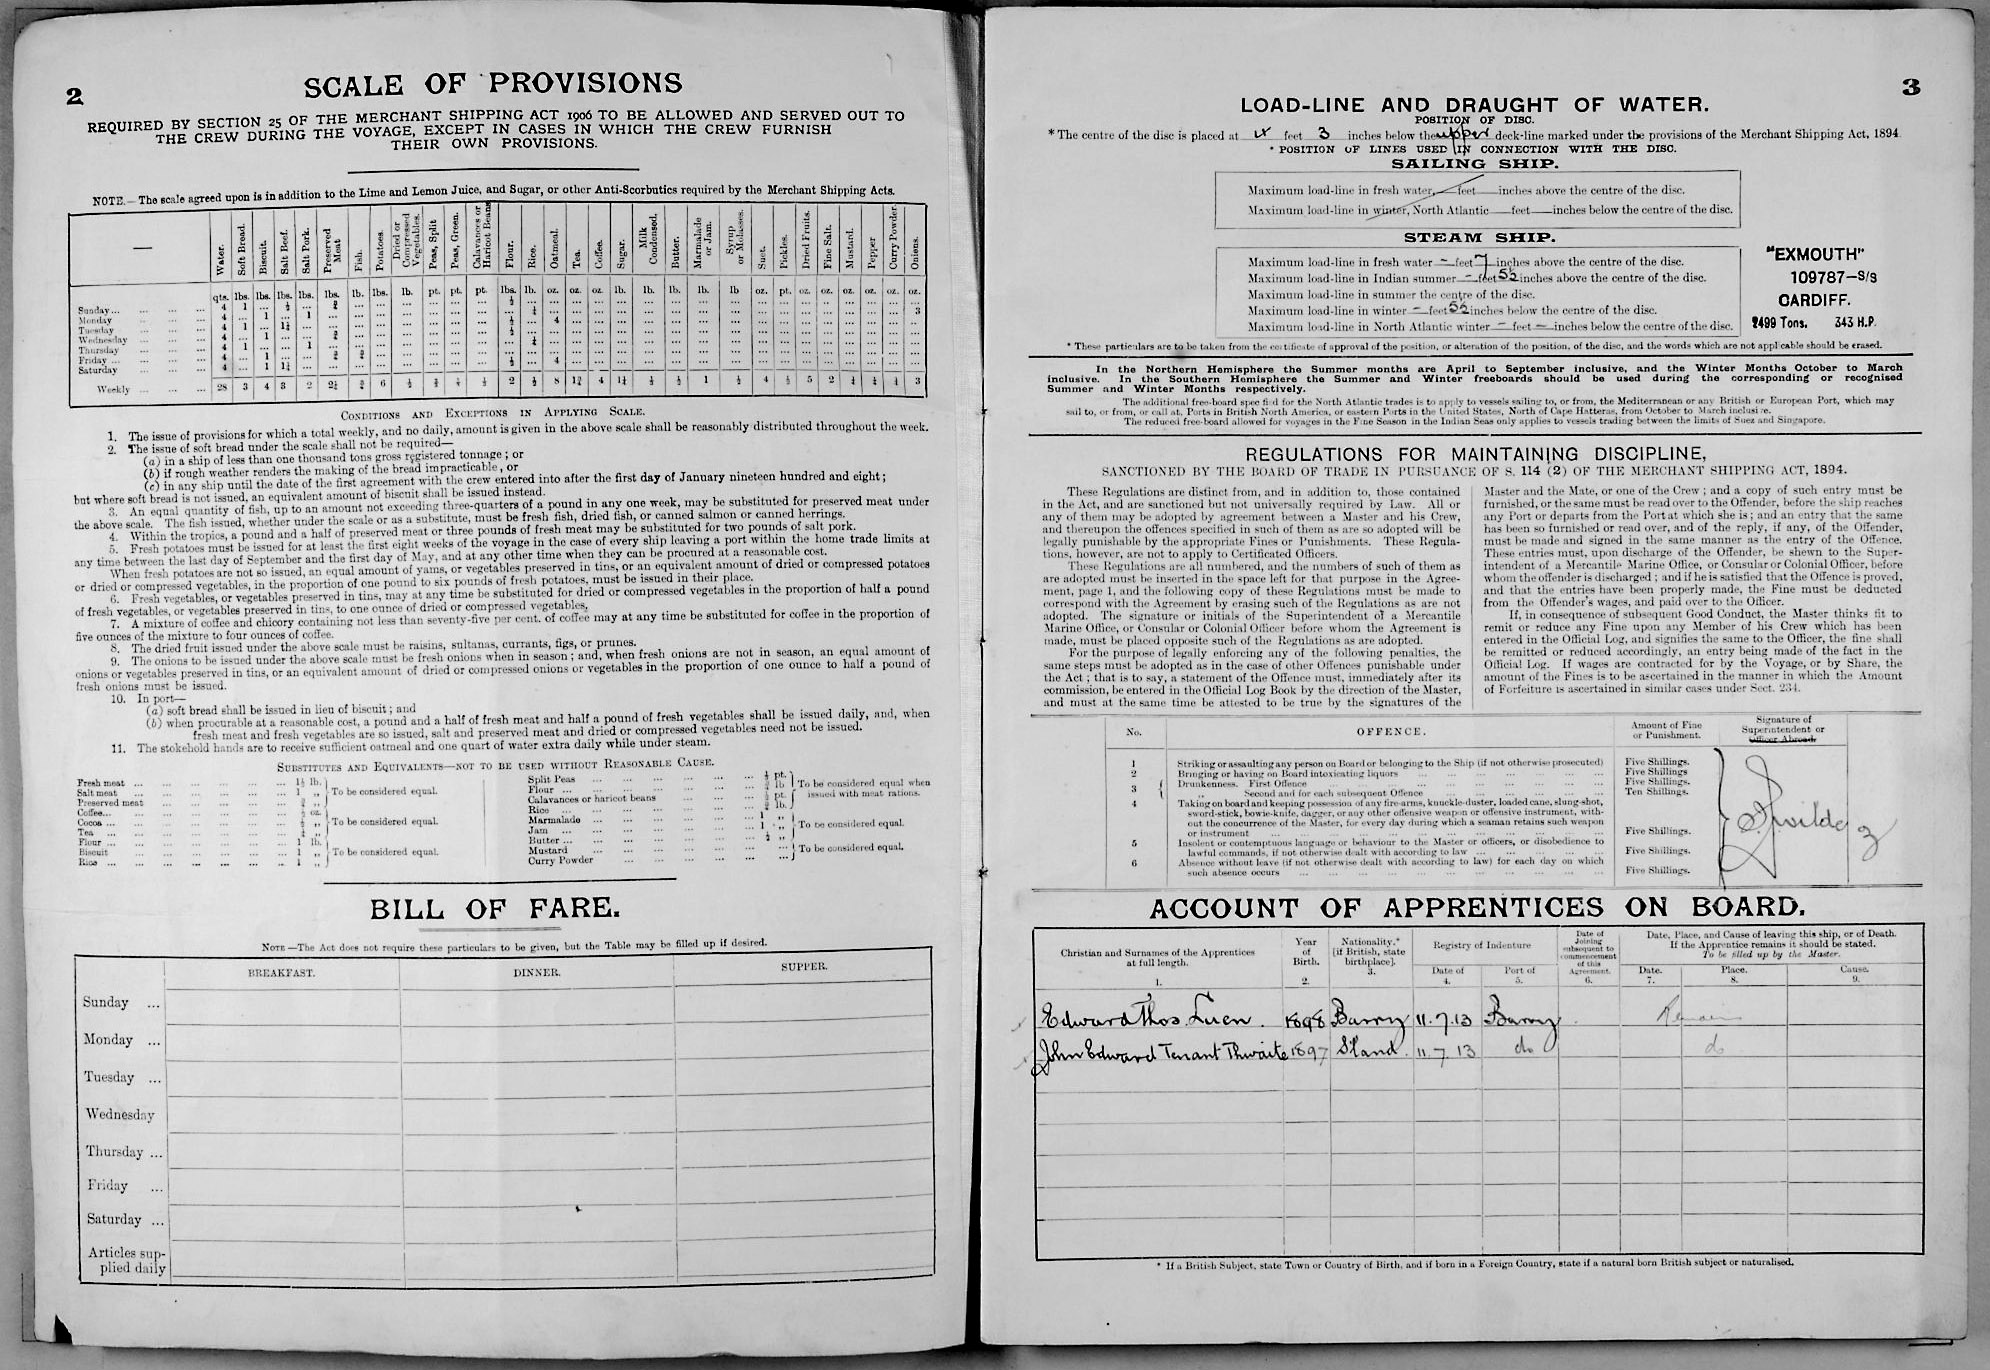 2
SCALE OF PROVISIONS
REQUIRED BY SECTION 25 OF THE MERCHANT SHIPPING ACT 1906 TO BE ALLOWED AND SERVED OUT TO
THE CREW DURING THE VOYAGE, EXCEPT IN CASES IN WHICH THE CREW FURNISH
THEIR OWN PROVISIONS.
NOTE.—The scale agreed upon is in addition to the Lime and Lemon Juice, and Sugar, or other Anti-Scorbutics required by the Merchant Shipping Acts.
— Water. Soft Bread. Biscuit. Salt Beef. Salt Pork. Preserved Meat Fish. Potatoes. Dried or Compressed Vegetables. Peas, Split Peas, Green. Calavances or Haricot Beans Flour. Rice. Oatmeal. Tea. Coffee. Sugar. Milk Condensed. Butter. Marmalade or Jam. Syrup or Molasses. Suet. Pickles. Dried Fruits. Fine Salt. Mustard. Pepper Curry Powder. Onions.
qts. lbs. lbs. lbs. lbs. lbs. lb. lbs. lb. pt. pt. pt. lbs. lb. oz. oz. oz. lb. lb. lb. lb. lb oz. pt. oz. oz. oz. oz. oz. oz.
Sunday... 4 1 ... ½ ... ¾
Monday 4 ... 1 ... 1
Tuesday 4 1 ... 1¼
Wednesday 4 ... 1 ... ... ¾
Thursday 4 1 ... ... 1
Friday ... 4 ... 1 1¼
Saturday 4
Weekly 28 3 4 3 2 2¼ ¾ 6 ½ 2 ½ 8 1¾ 4 1¼ 1 ½ 4 ½ 5 2 ¼ ¼ ¼ 3
CONDITIONS AND EXCEPTIONS IN APPLYING SCALE.
1. The issue of provisions for which a total weekly, and no daily, amount is given in the above scale shall be reasonably distributed throughout the week.
2. The issue of soft bread under the scale shall not be required—
(a) in a ship of less than one thousand tons gross registered tonnage; or
(b) if rough weather renders the making of the bread impracticable, or
(c) in any ship until the date of the first agreement with the crew entered into after the first day of January nineteen hundred and eight;
but where soft bread is not issued, an equivalent amount of biscuit shall be issued instead.
3. An equal quantity of fish, up to an amount not exceeding three-quarters of a pound in any one week, may be substituted for preserved meat under
the above scale. The fish issued, whether under the scale or as a substitute, must be fresh fish, dried fish, or canned salmon or canned herrings.
4. Within the tropics, a pound and a half of preserved meat or three pounds of fresh meat may be substituted for two pounds of salt pork.
5. Fresh potatoes must be issued for at least the first eight weeks of the voyage in the case of every ship leaving a port within the home trade limits at
any time between the last day of September and the first day of May, and at any other time when they can be procured at a reasonable cost.
When fresh potatoes are not so issued, an equal amount of yams, or vegetables preserved in tins, or an equivalent amount of dried or compressed potatoes
or dried or compressed vegetables, in the proportion of one pound to six pounds of fresh potatoes, must be issued in their place.
6. Fresh vegetables, or vegetables preserved in tins, may at any time be substituted for dried or compressed vegetables in the proportion of half a pound
of fresh vegetables, or vegetables preserved in tins, to one ounce of dried or compressed vegetables.
7. A mixture of coffee and chicory containing not less than seventy-five per cent. of coffee may at any time be substituted for coffee in the proportion of
five ounces of the mixture to four ounces of coffee.
8. The dried fruit issued under the above scale must be raisins, sultanas, currants, figs, or prunes.
9. The onions to be issued under the above scale must be fresh onions when in season; and, when fresh onions are not in season, an equal amount of
onions or vegetables preserved in tins, or an equivalent amount of dried or compressed onions or vegetables in the proportion of one ounce to half a pound of
fresh onions must be issued.
10. In port—
(a) soft bread shall be issued in lieu of biscuit; and
(b) when procurable at a reasonable cost, a pound and a half of fresh meat and half a pound of fresh vegetables shall be issued daily, and, when
fresh meat and fresh vegetables are so issued, salt and preserved meat and dried or compressed vegetables need not be issued.
11. The stokehold hands are to receive sufficient oatmeal and one quart of water extra daily while under steam.
SUBSTITUTES AND EQUIVALENTS—NOT TO BE USED WITHOUT REASONABLE CAUSE.
Fresh meat ... 1½ lb.
Salt meat ... 1 „ To be considered equal.
Preserved meat ... ¾ „
Coffee... ½ oz.
Cocoa ... To be considered equal.
Tea ... ¼ „
Flour ... 1 lb.
Biscuit ... 1 „ To be considered equal.
Rice ... 1 „
Split Peas ... pt.
Flour ... lb To be considered equal when
Calavances or haricot beans ... pt. issued with meat rations.
Rice ... lb.
Marmalade ... 1 „
Jam ... 1 „ To be considered equal.
Butter ... ½ „
Mustard ... To be considered equal.
Curry Powder ...
BILL OF FARE.
NOTE—The Act does not require these particulars to be given, but the Table may be filled up if desired.
BREAKFAST. DINNER. SUPPER.
Sunday ...
Monday ...
Tuesday ...
Wednesday
Thursday ...
Friday ...
Saturday ...
Articles sup-
plied daily
3
LOAD-LINE AND DRAUGHT OF WATER.
POSITION OF DISC.
* The centre of the disc is placed at 4 feet 3 inches below the upper deck-line marked under the provisions of the Merchant Shipping Act, 1894
* POSITION OF LINES USED IN CONNECTION WITH THE DISC.
SAILING SHIP.
Maximum load-line in fresh water, feet inches above the centre of the disc.
Maximum load-line in winter, North Atlantic feet inches below the centre of the disc.
STEAM SHIP.
Maximum load-line in fresh water – feet 7 inches above the centre of the disc.
Maximum load-line in Indian summer – feet 5½ inches above the centre of the disc.
Maximum load-line in summer the centre of the disc.
Maximum load-line in winter – feet 5½ inches below the centre of the disc.
Maximum load-line in North Atlantic winter – feet – inches below the centre of the disc.
"EXMOUTH"
109787–S/S
CARDIFF.
2499 Tons. 343 H.P.
* These particulars are to be taken from the certificate of approval of the position, or alteration of the position, of the disc, and the words which are not applicable should be erased.
In the Northern Hemisphere the Summer months are April to September inclusive, and the Winter Months October to March
inclusive. In the Southern Hemisphere the Summer and Winter freeboards should be used during the corresponding or recognised
Summer and Winter Months respectively.
The additional free-board specified for the North Atlantic trades is to apply to vessels sailing to, or from, the Mediterranean or any British or European Port, which may
sail to, or from, or call at, Ports in British North America, or eastern Ports in the United States, North of Cape Hatteras, from October to March inclusive.
The reduced free-board allowed for voyages in the Fine Season in the Indian Seas only applies to vessels trading between the limits of Suez and Singapore.
REGULATIONS FOR MAINTAINING DISCIPLINE,
SANCTIONED BY THE BOARD OF TRADE IN PURSUANCE OF S. 114 (2) OF THE MERCHANT SHIPPING ACT, 1894.
These Regulations are distinct from, and in addition to, those contained
in the Act, and are sanctioned but not universally required by Law. All or
any of them may be adopted by agreement between a Master and his Crew,
and thereupon the offences specified in such of them as are so adopted will be
legally punishable by the appropriate Fines or Punishments. These Regula-
tions, however, are not to apply to Certificated Officers.
These Regulations are all numbered, and the numbers of such of them as
are adopted must be inserted in the space left for that purpose in the Agree-
ment, page 1, and the following copy of these Regulations must be made to
correspond with the Agreement by erasing such of the Regulations as are not
adopted. The signature or initials of the Superintendent of a Mercantile
Marine Office, or Consular or Colonial Officer before whom the Agreement is
made, must be placed opposite such of the Regulations as are adopted.
For the purpose of legally enforcing any of the following penalties, the
same steps must be adopted as in the case of other Offences punishable under
the Act; that is to say, a statement of the Offence must, immediately after its
commission, be entered in the Official Log Book by the direction of the Master,
and must at the same time be attested to be true by the signatures of the
Master and the Mate, or one of the Crew; and a copy of such entry must be
furnished, or the same must be read over to the Offender, before the ship reaches
any Port or departs from the Port at which she is; and an entry that the same
has been so furnished or read over, and of the reply, if any, of the Offender,
must be made and signed in the same manner as the entry of the Offence.
These entries must, upon discharge of the Offender, be shewn to the Super-
intendent of a Mercantile Marine Office, or Consular or Colonial Officer, before
whom the offender is discharged; and if he is satisfied that the Offence is proved,
and that the entries have been properly made, the Fine must be deducted
from the Offender's wages, and paid over to the Officer.
If, in consequence of subsequent Good Conduct, the Master thinks fit to
remit or reduce any Fine upon any Member of his Crew which has been
entered in the Official Log, and signifies the same to the Officer, the fine shall
be remitted or reduced accordingly, an entry being made of the fact in the
Official Log. If wages are contracted for by the Voyage, or by Share, the
amount of the Fines is to be ascertained in the manner in which the Amount
of Forfeiture is ascertained in similar cases under Sect. 234.
No. OFFENCE. Amount of Fine or Punishment. Signature of Superintendent or Officer Abroad.
1 Striking or assaulting any person on Board or belonging to the Ship (if not otherwise prosecuted) Five Shillings.
2 Bringing or having on Board intoxicating liquors ... Five Shillings
3 Drunkenness. First Offence ... Five Shillings.
„ Second and for each subsequent Offence ... Ten Shillings.
4 Taking on board and keeping possession of any fire-arms, knuckle-duster, loaded cane, slung-shot,
sword-stick, bowie-knife, dagger, or any other offensive weapon or offensive instrument, with-
out the concurrence of the Master, for every day during which a seaman retains such weapon
or instrument ... Five Shillings.
5 Insolent or contemptuous language or behaviour to the Master or officers, or disobedience to
lawful commands, if not otherwise dealt with according to law ... Five Shillings.
6 Absence without leave (if not otherwise dealt with according to law) for each day on which
such absence occurs ... Five Shillings.
ACCOUNT OF APPRENTICES ON BOARD.
Christian and Surnames of the Apprentices at full length. Year of Birth. Nationality.* [if British, state birthplace]. Registry of Indenture Date of Joining subsequent to commencement of this Agreement. Date, Place, and Cause of leaving this ship, or of Death. If the Apprentice remains it should be stated. To be filled up by the Master.
Date of Port of Date. Place. Cause.
1. 2. 3. 4. 5. 6. 7. 8. 9.
Edward Thos. Luen. 1898 Barry 11.7.13 Barry Remain
John Edward Tenant Thwaite 1897 S'land. 11.7.13 do do
* If a British Subject, state Town or Country of Birth, and if born in a Foreign Country, state if a natural born British subject or naturalised.